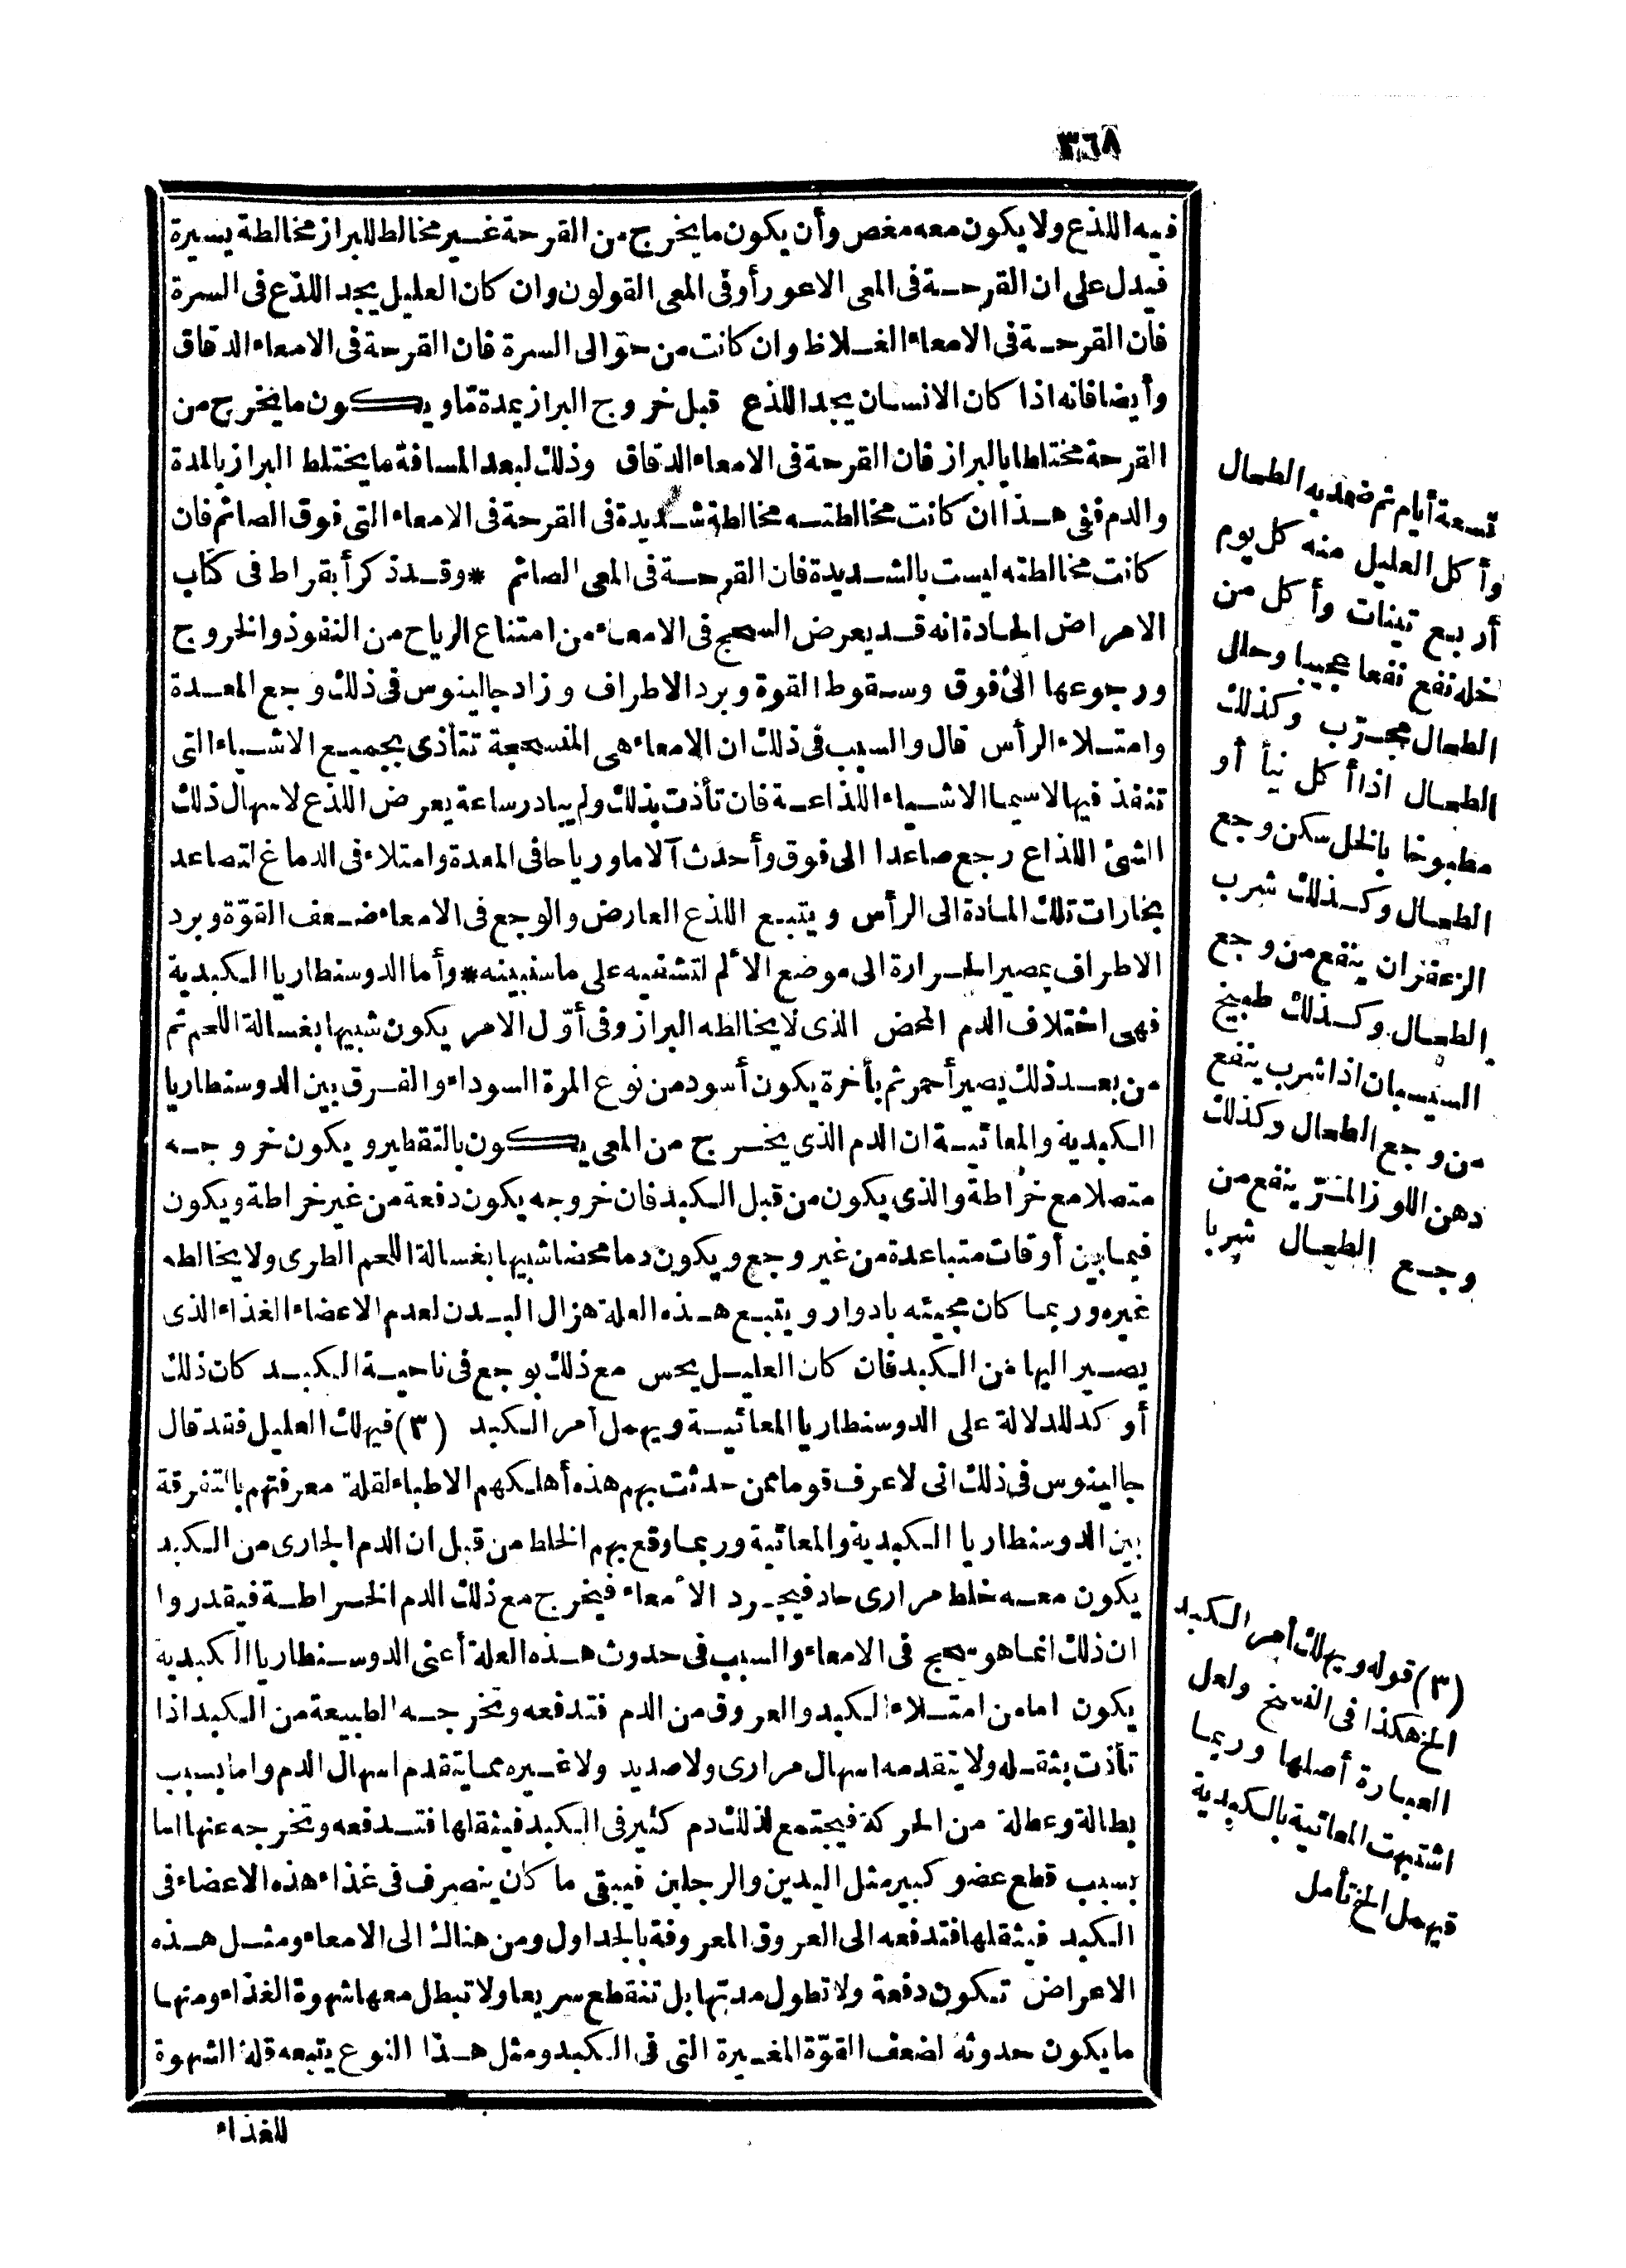 ٣٦٨
فيه اللذع ولا يكون معه مغص وأن يكون ما يخرج من القرحة غير مخالط للبراز مخالطة يسيرة
فيدل على ان القرحة فى المعى الاعور أو فى المعى القولون وان كان العليل يجد اللذع فى السرة
فان القرحة فى الامعاء الغلاظ وان كانت من حوالى السرة فان القرحة فى الامعاء الدقاق
وأيضا فانه اذا كان الانسان يجد اللذع قبل خروج البراز بمدة ما ويكون ما يخرج من
القرحة مختلطا بالبراز فان القرحة فى الامعاء الدقاق وذلك لبعد المسافة ما يختلط البراز بالمدة
والدم ففى هذا ان كانت مخالطته مخالطة شديدة فى القرحة فى الامعاء التى فوق الصائم فان
كانت مخالطته ليست بالشديدة فان القرحة فى المعى الصائم * وقد ذكر أبقراط فى كتاب
الامراض الحادة انه قد يعرض السحج فى الامعاء من امتناع الرياح من النفوذ والخروج
ورجوعها الى فوق وسقوط القوة وبرد الاطراف وزاد جالينوس فى ذلك وجع المعدة
وامتلاء الرأس قال والسبب فى ذلك ان الامعاء هى المنسحجة تتأذى بجميع الاشياء التى
تنفذ فيها لاسيما الاشياء اللذاعة فان تأذت بذلك ولم يبادر ساعة يعرض اللذع لاسهال ذلك
الشئ اللذاع رجع صاعدا الى فوق وأحدث آلاما ورياحا فى المعدة وامتلاء فى الدماغ لتصاعد
بخارات تلك المادة الى الرأس ويتبع اللذع العارض والوجع فى الامعاء ضعف القوّة وبرد
الاطراف بمصير الحرارة الى موضع الألم لتشفيه على ما سنبينه * وأما الدوسنطاريا الكبدية
فهى اختلاف الدم المحض الذى لا يخالطه البراز وفى أوّل الامر يكون شبيها بغسالة اللحم ثم
من بعد ذلك يصير أحمر ثم بأخرة يكون أسود من نوع المرة السوداء والفرق بين الدوسنطاريا
الكبدية والمعائية ان الدم الذى يخرج من المعى يكون بالتقطير ويكون خروجه
متصلا مع خراطة والذى يكون من قبل الكبد فان خروجه يكون دفعة من غير خراطة ويكون
فيما بين أوقات متباعدة من غير وجع ويكون دما محضا شبيها بغسالة اللحم الطرى ولا يخالطه
غيره وربما كان مجيئه بادوار ويتبع هذه العلة هزال البدن لعدم الاعضاء الغذاء الذى
يصير اليها من الكبد فان كان العليل يحس مع ذلك بوجع فى ناحية الكبد كان ذلك
أوكد للدلالة على الدوسنطاريا المعائية ويهمل أمر الكبد (٣) فيهلك العليل فقد قال
جالينوس فى ذلك انى لاعرف قوما ممن حدثت بهم هذه أهلكهم الاطباء لقلة معرفتهم بالتفرقة
بين الدوسنطاريا الكبدية والمعائية وربما وقع بهم الخلط من قبل ان الدم الجارى من الكبد
يكون معه خلط مرارى حاد فيجرد الأمعاء فيخرج مع ذلك الدم الخراطة فيقدروا
ان ذلك انما هو سحج فى الامعاء والسبب فى حدوث هذه العلة أعنى الدوسنطاريا الكبدية
يكون اما من امتلاء الكبد والعروق من الدم فتدفعه وتخرجه الطبيعة من الكبد اذا
تأذت بثقله ولا يتقدمه اسهال مرارى ولا صديد ولا غيره مما يتقدم اسهال الدم واما بسبب
بطالة وعطالة من الحركة فيجتمع لذلك دم كثير فى الكبد فيثقلها فتدفعه وتخرجه عنها اما
بسبب قطع عضو كبير مثل اليدين والرجلين فيبقى ما كان ينصرف فى غذاء هذه الاعضاء فى
الكبد فيثقلها فتدفعه الى العروق المعروفة بالجداول ومن هناك الى الامعاء ومثل هذه
الاعراض تكون دفعة ولا تطول مدتها بل تنقطع سريعا ولا تبطل معها شهوة الغذاء ومنها
ما يكون حدوثه لضعف القوّة المغيرة التى فى الكبد ومثل هذا النوع يتبعه قلة الشهوة
للغذاء
تسعة أيام ثم ضمد به الطحال
وأكل العليل منه كل يوم
أربع تينات وأكل من
خله نفع نفعا عجيبا وحلل
الطحال مجرّب وكذلك
الطحال اذا أكل نيأ أو
مطبوخا بالخل سكن وجع
الطحال وكذلك شرب
الزعفران ينفع من وجع
الطحال وكذلك طبيخ
السيسبان اذا شرب ينفع
من وجع الطحال وكذلك
دهن اللوز المرّ ينفع من
وجع الطحال شربا
(٣) قوله ويهلك أمر الكبد
الخ هكذا فى النسخ ولعل
العبارة أصلها وربما
اشتبهت المعائية بالكبدية
فيهمل الخ تأمل